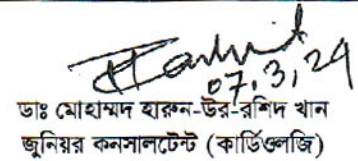 07.3.24
ডাঃ মোহাম্মদ হারুন-উর-রশিদ খান
জুনিয়র কনসালটেন্ট (কার্ডিওলজি)